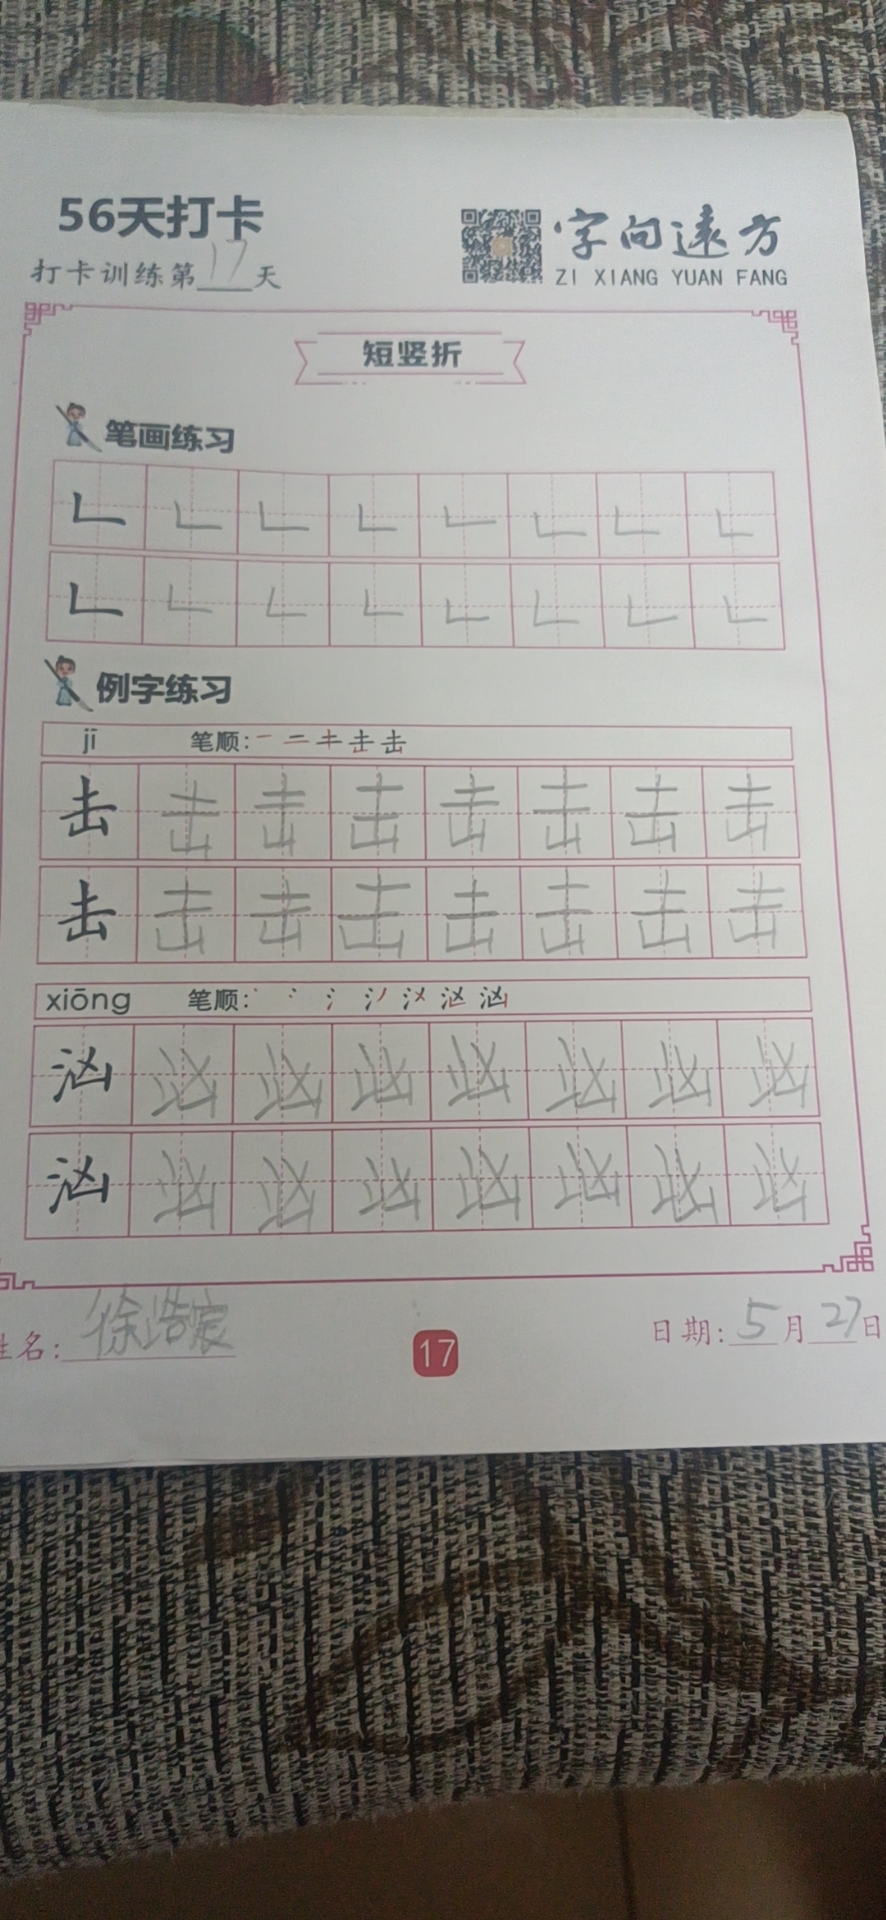 56天打卡
打卡训练第17天
字向远方
ZI XIANG YUAN FANG
短竖折
笔画练习
𠃊 𠃊 𠃊 𠃊 𠃊 𠃊 𠃊 𠃊
𠃊 𠃊 𠃊 𠃊 𠃊 𠃊 𠃊 𠃊
例字练习
jī 笔顺:
击 击 击 击 击 击 击 击
击 击 击 击 击 击 击 击
xiōng 笔顺:
汹 汹 汹 汹 汹 汹 汹 汹
汹 汹 汹 汹 汹 汹 汹 汹
姓名: 徐浩宸
17
日期: 5月27日